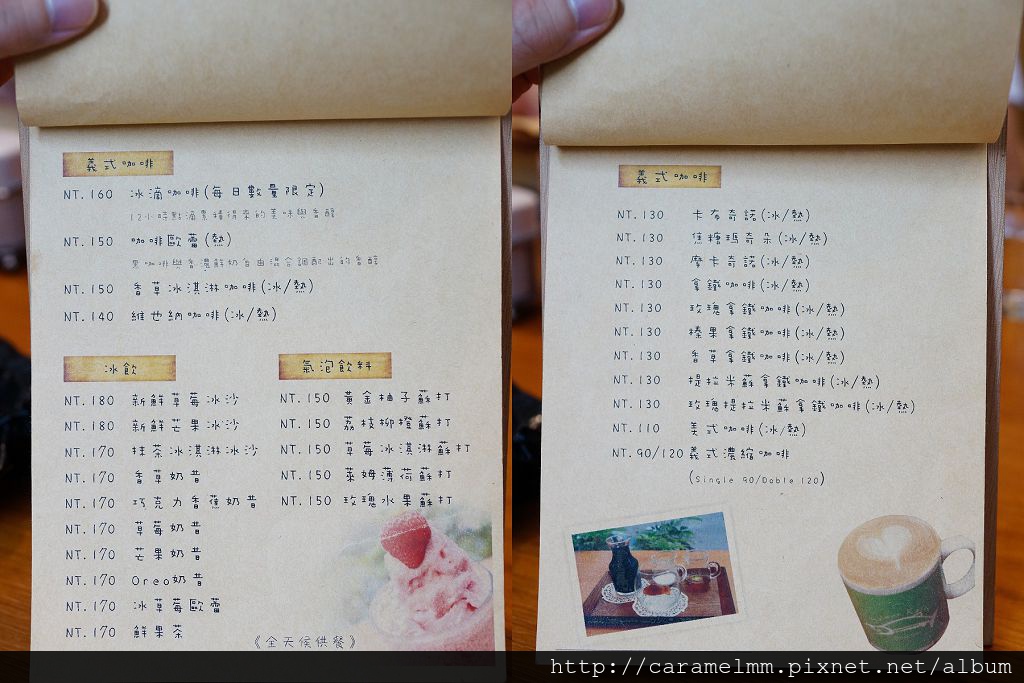 義式咖啡
NT.160 冰滴咖啡(每日數量限定)
12小時點滴累積得來的美味與香醇
NT.150 咖啡歐蕾(熱)
黑咖啡與香濃鮮奶自由混合調配出的香醇
NT.150 香草冰淇淋咖啡(冰/熱)
NT.140 維也納咖啡(冰/熱)
冰飲
NT.180 新鮮草莓冰沙
NT.180 新鮮芒果冰沙
NT.170 抹茶冰淇淋冰沙
NT.170 香草奶昔
NT.170 巧克力香蕉奶昔
NT.170 草莓奶昔
NT.170 芒果奶昔
NT.170 Oreo奶昔
NT.170 冰草莓歐蕾
NT.170 鮮果茶
氣泡飲料
NT.150 黃金柚子蘇打
NT.150 荔枝柳橙蘇打
NT.150 草莓冰淇淋蘇打
NT.150 萊姆薄荷蘇打
NT.150 玫瑰水果蘇打
《全天侯供餐》
義式咖啡
NT.130 卡布奇諾(冰/熱)
NT.130 焦糖瑪奇朵(冰/熱)
NT.130 摩卡奇諾(冰/熱)
NT.130 拿鐵咖啡(冰/熱)
NT.130 玫瑰拿鐵咖啡(冰/熱)
NT.130 榛果拿鐵咖啡(冰/熱)
NT.130 香草拿鐵咖啡(冰/熱)
NT.130 提拉米蘇拿鐵咖啡(冰/熱)
NT.130 玫瑰提拉米蘇拿鐵咖啡(冰/熱)
NT.110 美式咖啡(冰/熱)
NT.90/120 義式濃縮咖啡
(Single 90/Doble 120)
http://caramelmm.pixnet.net/album